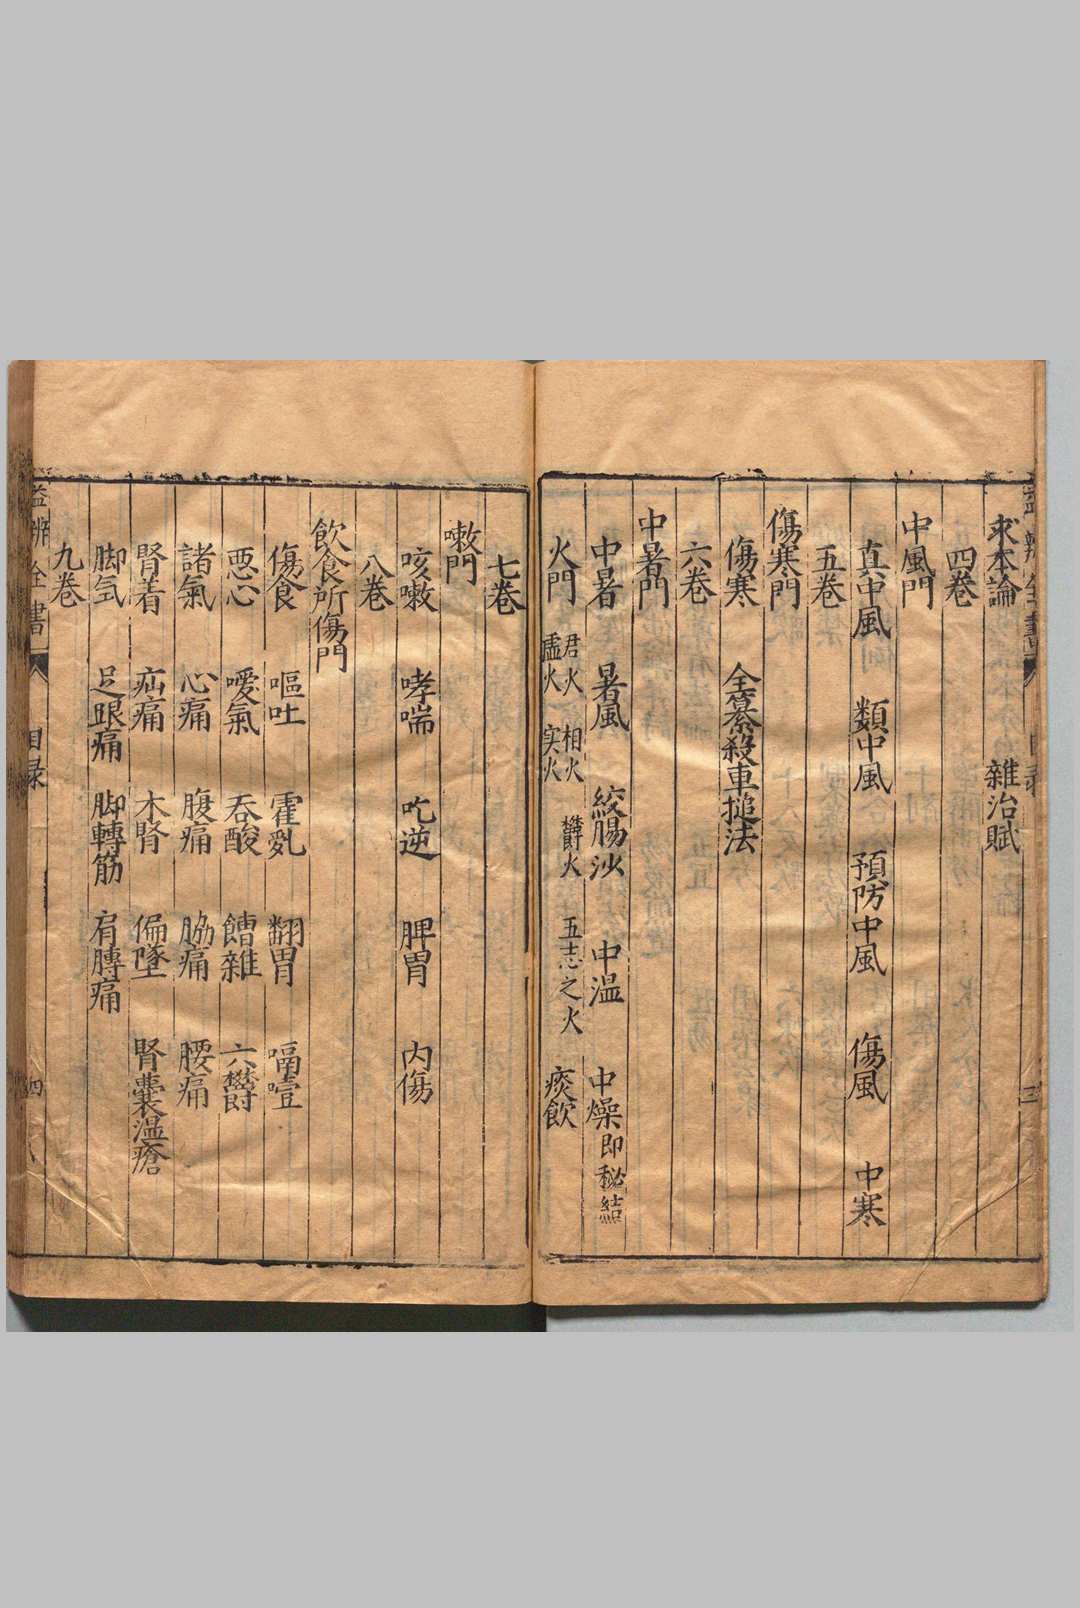 求本論 雜治賦
四卷
中風門
真中風 類中風 預防中風 傷風 中寒
五卷
傷寒門
傷寒 全纂殺車搥法
六卷
中暑門
中暑 暑風 絞腸沙 中温 中燥即秘結
火門 君火 相火 欝火 五志之火 虛火 实火 痰飲
七卷
嗽門
咳嗽 哮喘 吃逆 脾胃 内傷
八卷
飲食所傷門
傷食 嘔吐 霍亂 翻胃 嗝噎
悪心 噯氣 吞酸 饋雜 六欝
諸氣 心痛 腹痛 脇痛 腰痛
腎着 疝痛 木腎 偏墜 腎囊温瘡
脚氣 足跟痛 脚轉筋 肩膊痛
九卷
全書 目录 四